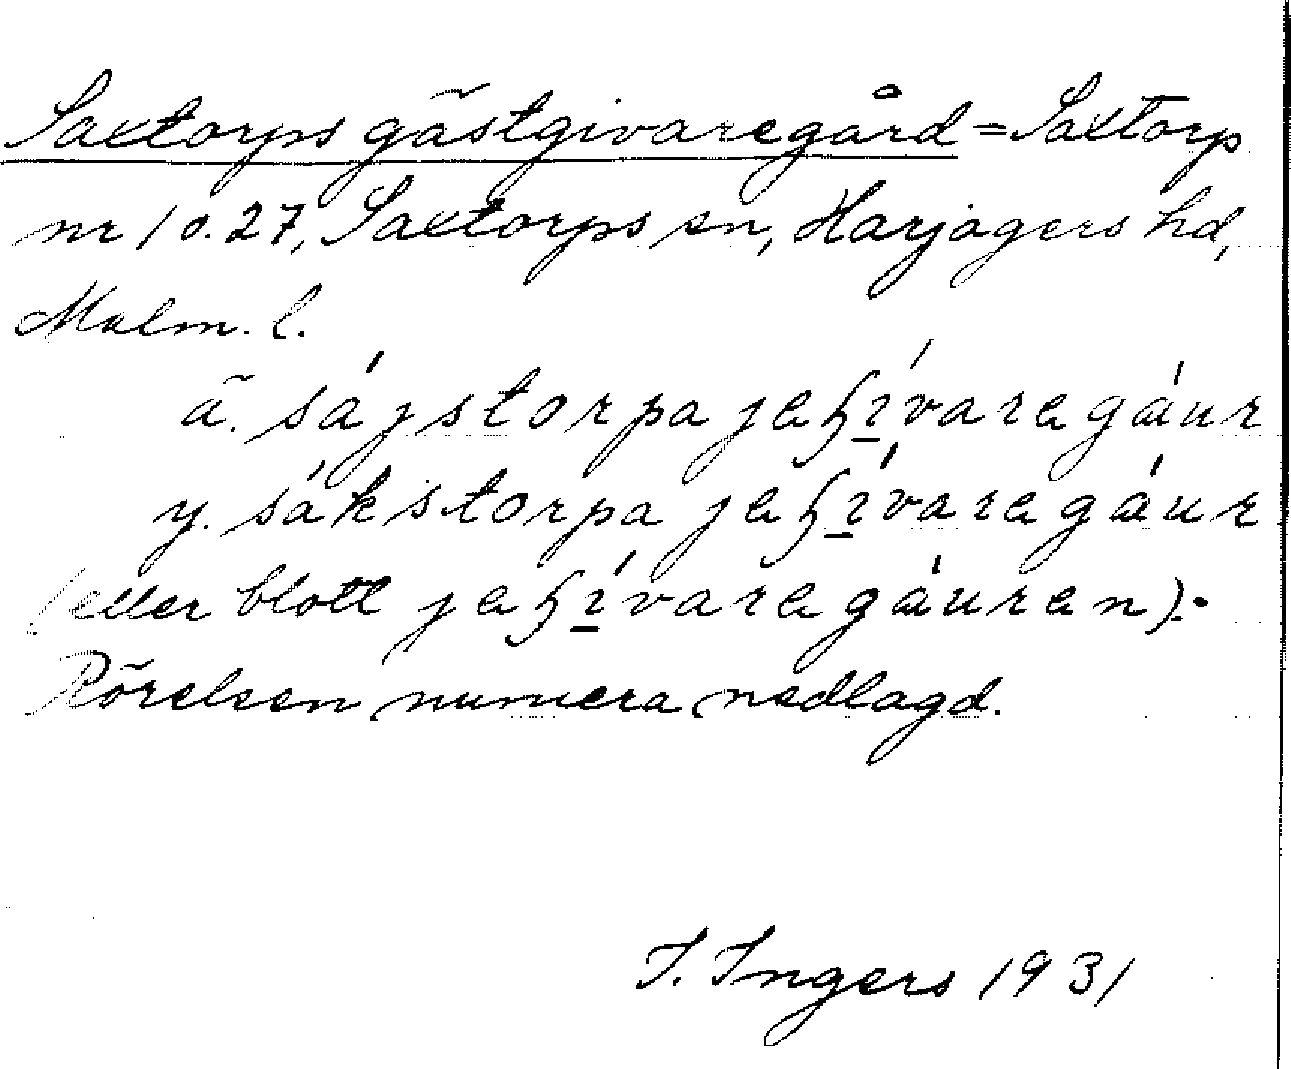 Saxtorps gästgivaregård = Saxtorp
nr 1 o. 27, Saxtorps sn, Harjagers hd,
Malm. l.
ä. sájstorpa jeʂívaregáur
y. sákstorpa jeʂívaregáur
(eller blott jeʂívaregáuren).
Rörelsen numera nedlagd.
I. Ingers 1931